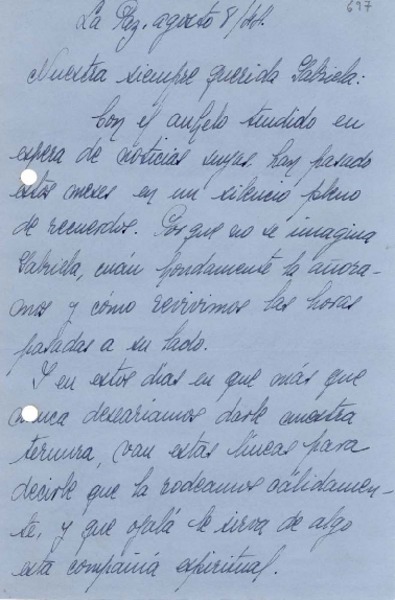 697
La Paz, agosto 8/
Nuestra siempre querida Gabriela:
Con el anhelo tendido en
espera de noticias suyas han pasado
estos meses en un silencio pleno
de recuerdos. Porque no se imagina
Gabriela, cuán hondamente la añora-
mos y cómo revivimos las horas
pasadas a su lado.
Y en estos días en que más que
nunca desearíamos darle nuestra
ternura, van estas líneas para
decirle que la rodeamos cálidamen-
te, y que ojalá le sirva de algo
esta compañía espiritual.